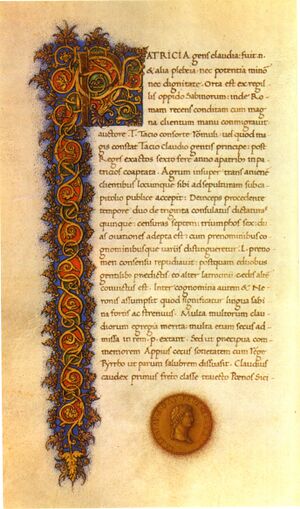 PATRICIA gens claudia: fuit .n.
& alia plebeia nec potentia mino
nec dignitate. Orta est ex regil
lis oppido Sabinorum: inde Ro
mam recens conditam cum mag
na clientum manu conmigravit
auctore .T. Tacio consorte Romuli. vel quod ma
gis constat Tacio Claudio gentis principe: post
Reges exactos sexto fere anno a patribus in pa
tricios cooptata. Agrum insuper trans aniene
clientibus locumque sibi ad sepulturam sub ca
pitolio publice accepit. Deinceps procedente
tempore duo de triginta consulatus dictaturas
quinque: censuras septem: triumphos sex: du
as ovationes adepta est: cum prenominibus co
gnominibusque variis distingueretur. L. preno
men consensu repudiavit: postquam e duobus
gentilibus preditis eo alter latrocinii: cedis alter
convictus est: Inter cognomina autem & Ne
ronis assumpsit quod significatur lingua sabi
na fortis ac strenuus. Multa multorum clau
diorum egregia merita: multa etiam secus ad
missa in rem .p. extant. Sed ut precipua com
memorem Appius cecus societatem cum rege
Pyrrho ut parum salubrem dissuasit. Claudius
caudex primus freto classe traiecto Poenos Sici